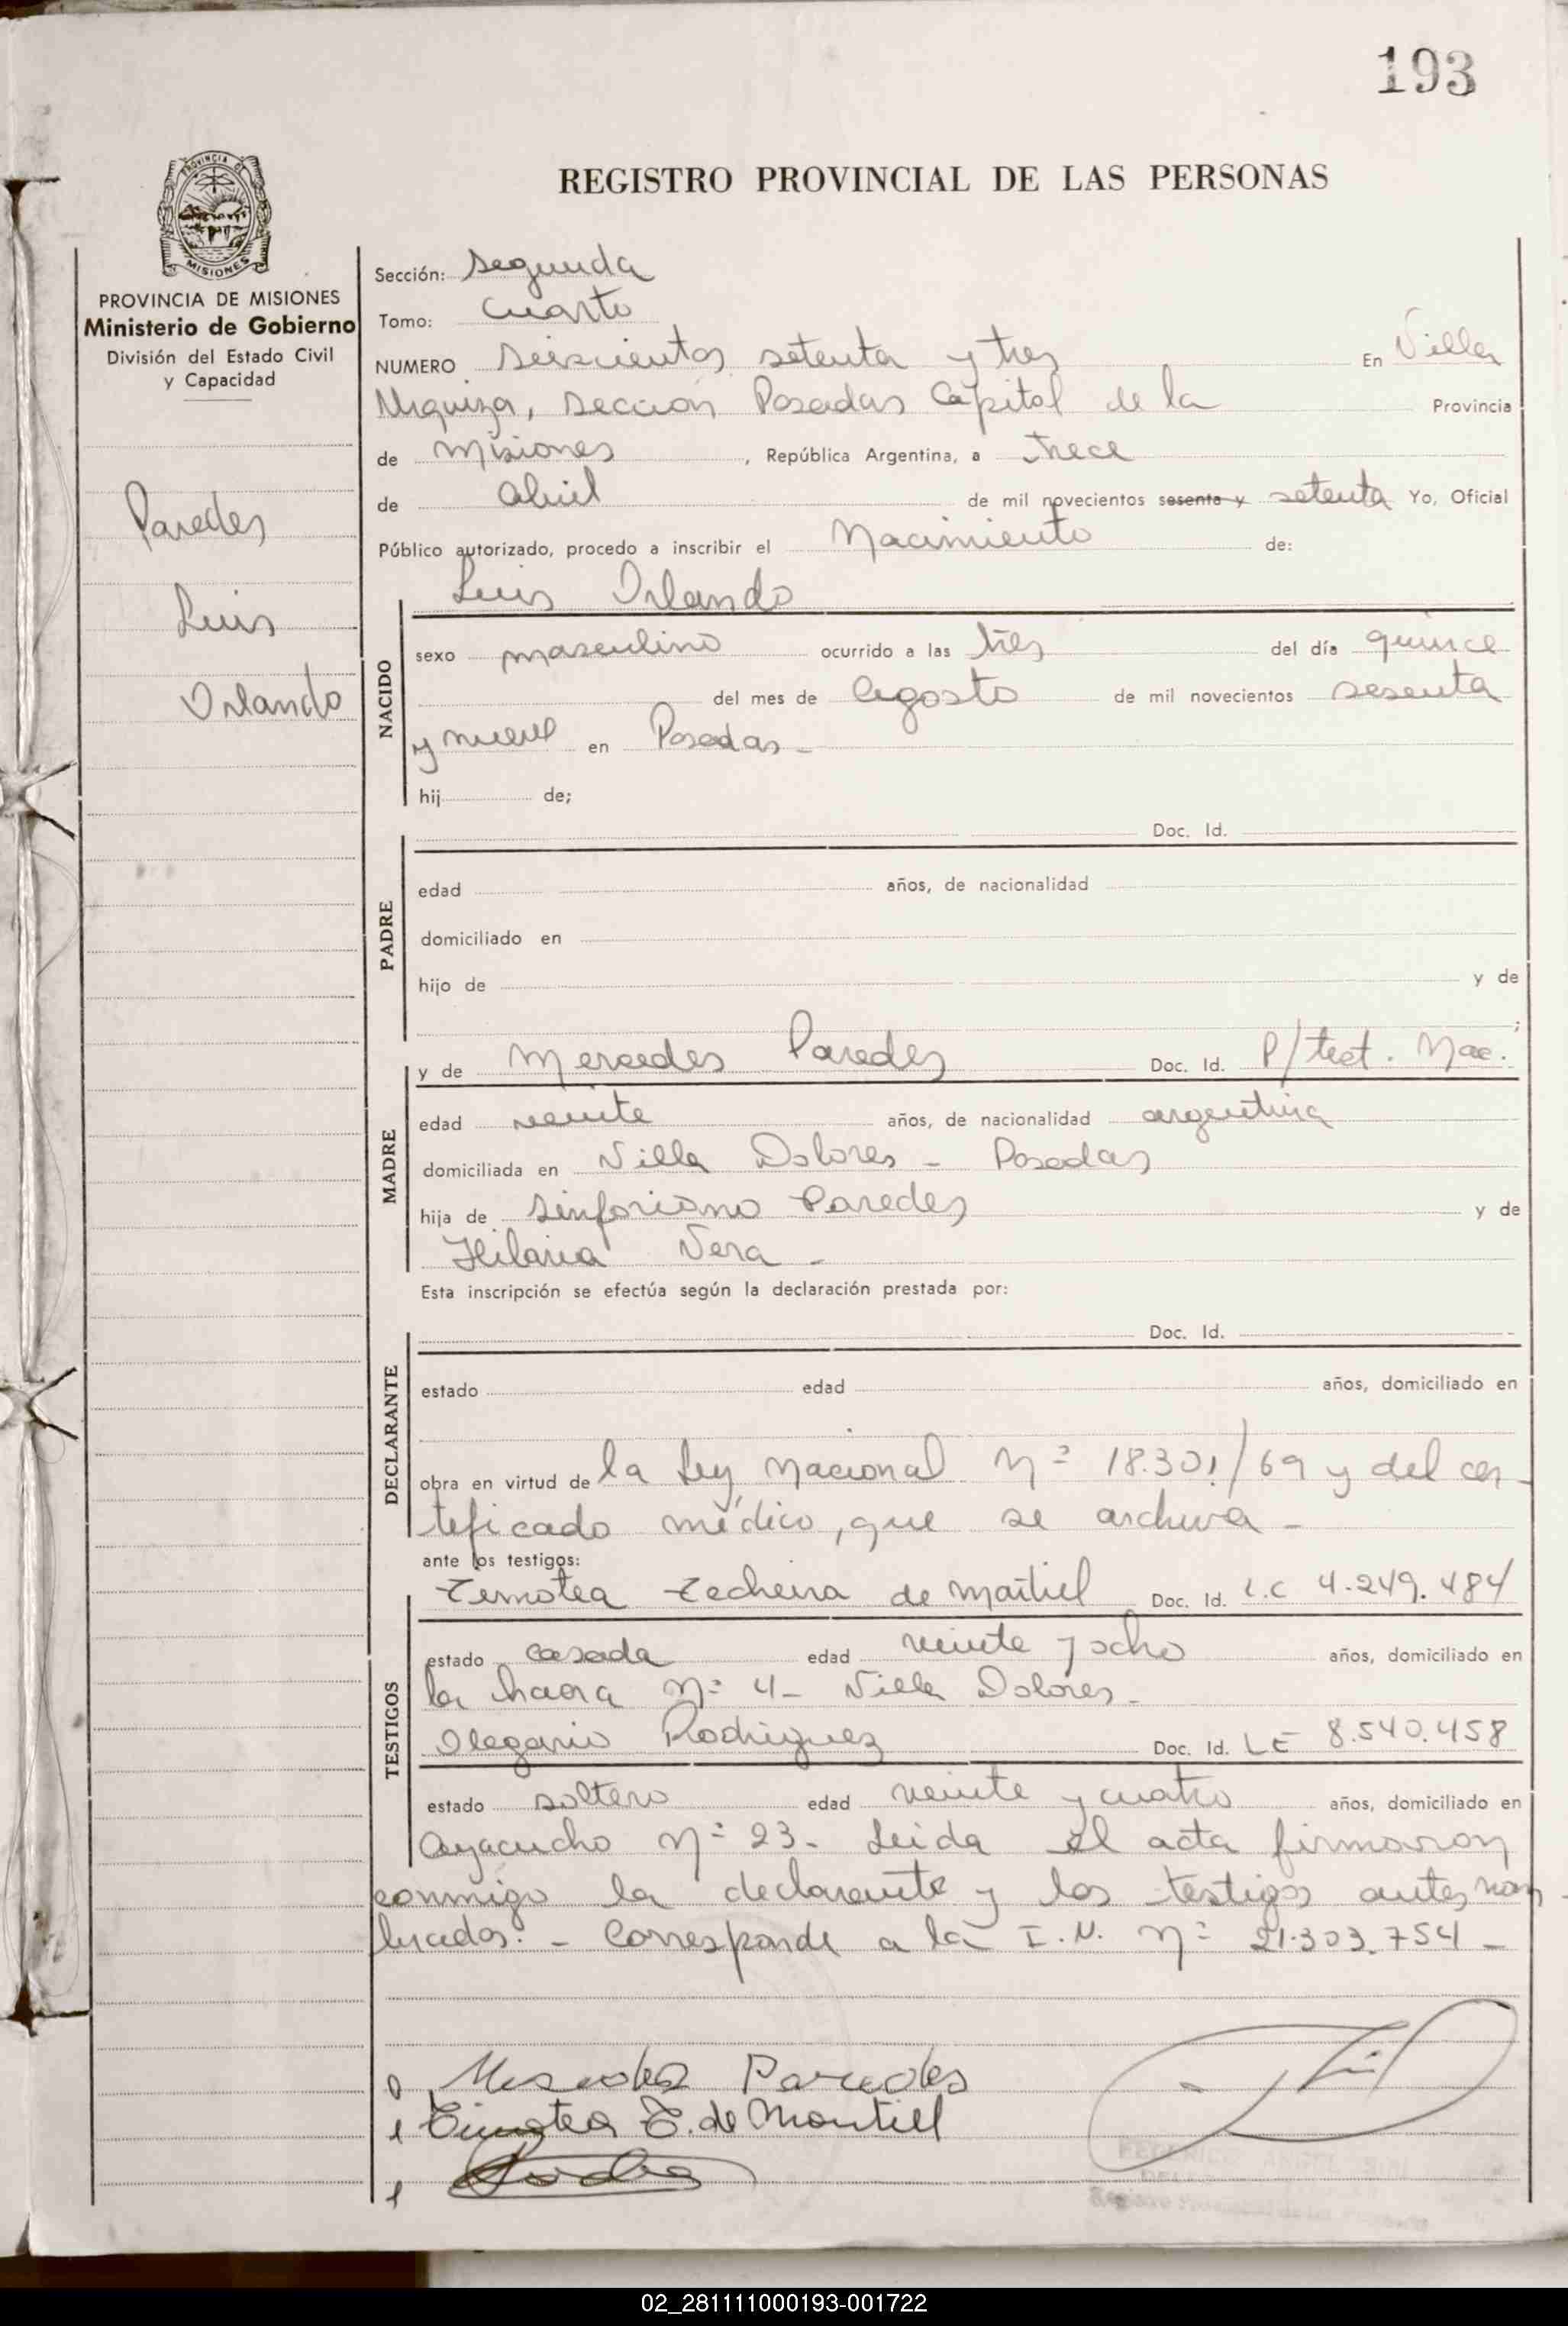 193
REGISTRO PROVINCIAL DE LAS PERSONAS
PROVINCIA DE MISIONES
PROVINCIA DE MISIONES
Ministerio de Gobierno
División del Estado Civil
y Capacidad
Paredes
Luis
Orlando
Sección: Segunda
Tomo: Cuarto
NUMERO Seiscientos setenta y tres En Villa
Urquiza, sección Posadas Capital de la Provincia
de Misiones, República Argentina, a trece
de abril de mil novecientos sesenta y setenta Yo, Oficial
Público autorizado, procedo a inscribir el Nacimiento de:
Luis Orlando
NACIDO
sexo masculino ocurrido a las tres del día quince
del mes de Agosto de mil novecientos sesenta
y nueve en Posadas-
hij de;
PADRE
Doc. Id.
edad años, de nacionalidad
domiciliado en
hijo de y de
;
MADRE
y de Mercedes Paredes Doc. Id. P/test. Nac.
edad veinte años, de nacionalidad argentina
domiciliada en Villa Dolores - Posadas
hija de Sinforiano Paredes y de
Hilaria Vera -
Esta inscripción se efectúa según la declaración prestada por:
DECLARANTE
Doc. Id.
estado edad años, domiciliado en
obra en virtud de la Ley Nacional Nº 18.301/69 y del cer-
tificado médico, que se archiva -
ante los testigos:
TESTIGOS
de Doc. Id. L.C 4.249.484
estado casada edad veinte y ocho años, domiciliado en
la chacra Nº 4- Villa Dolores-
Olegario Rodriguez Doc. Id. LE 8.540.458
estado soltero edad veinte y cuatro años, domiciliado en
Ayacucho Nº 23- Leida el acta firmaron
conmigo la declarante y los testigos antes nom-
brados.- Corresponde a la I.N. Nº 21.303.754-
Mercedes Paredes
Timotea T. de Montiel
02_281111000193-001722